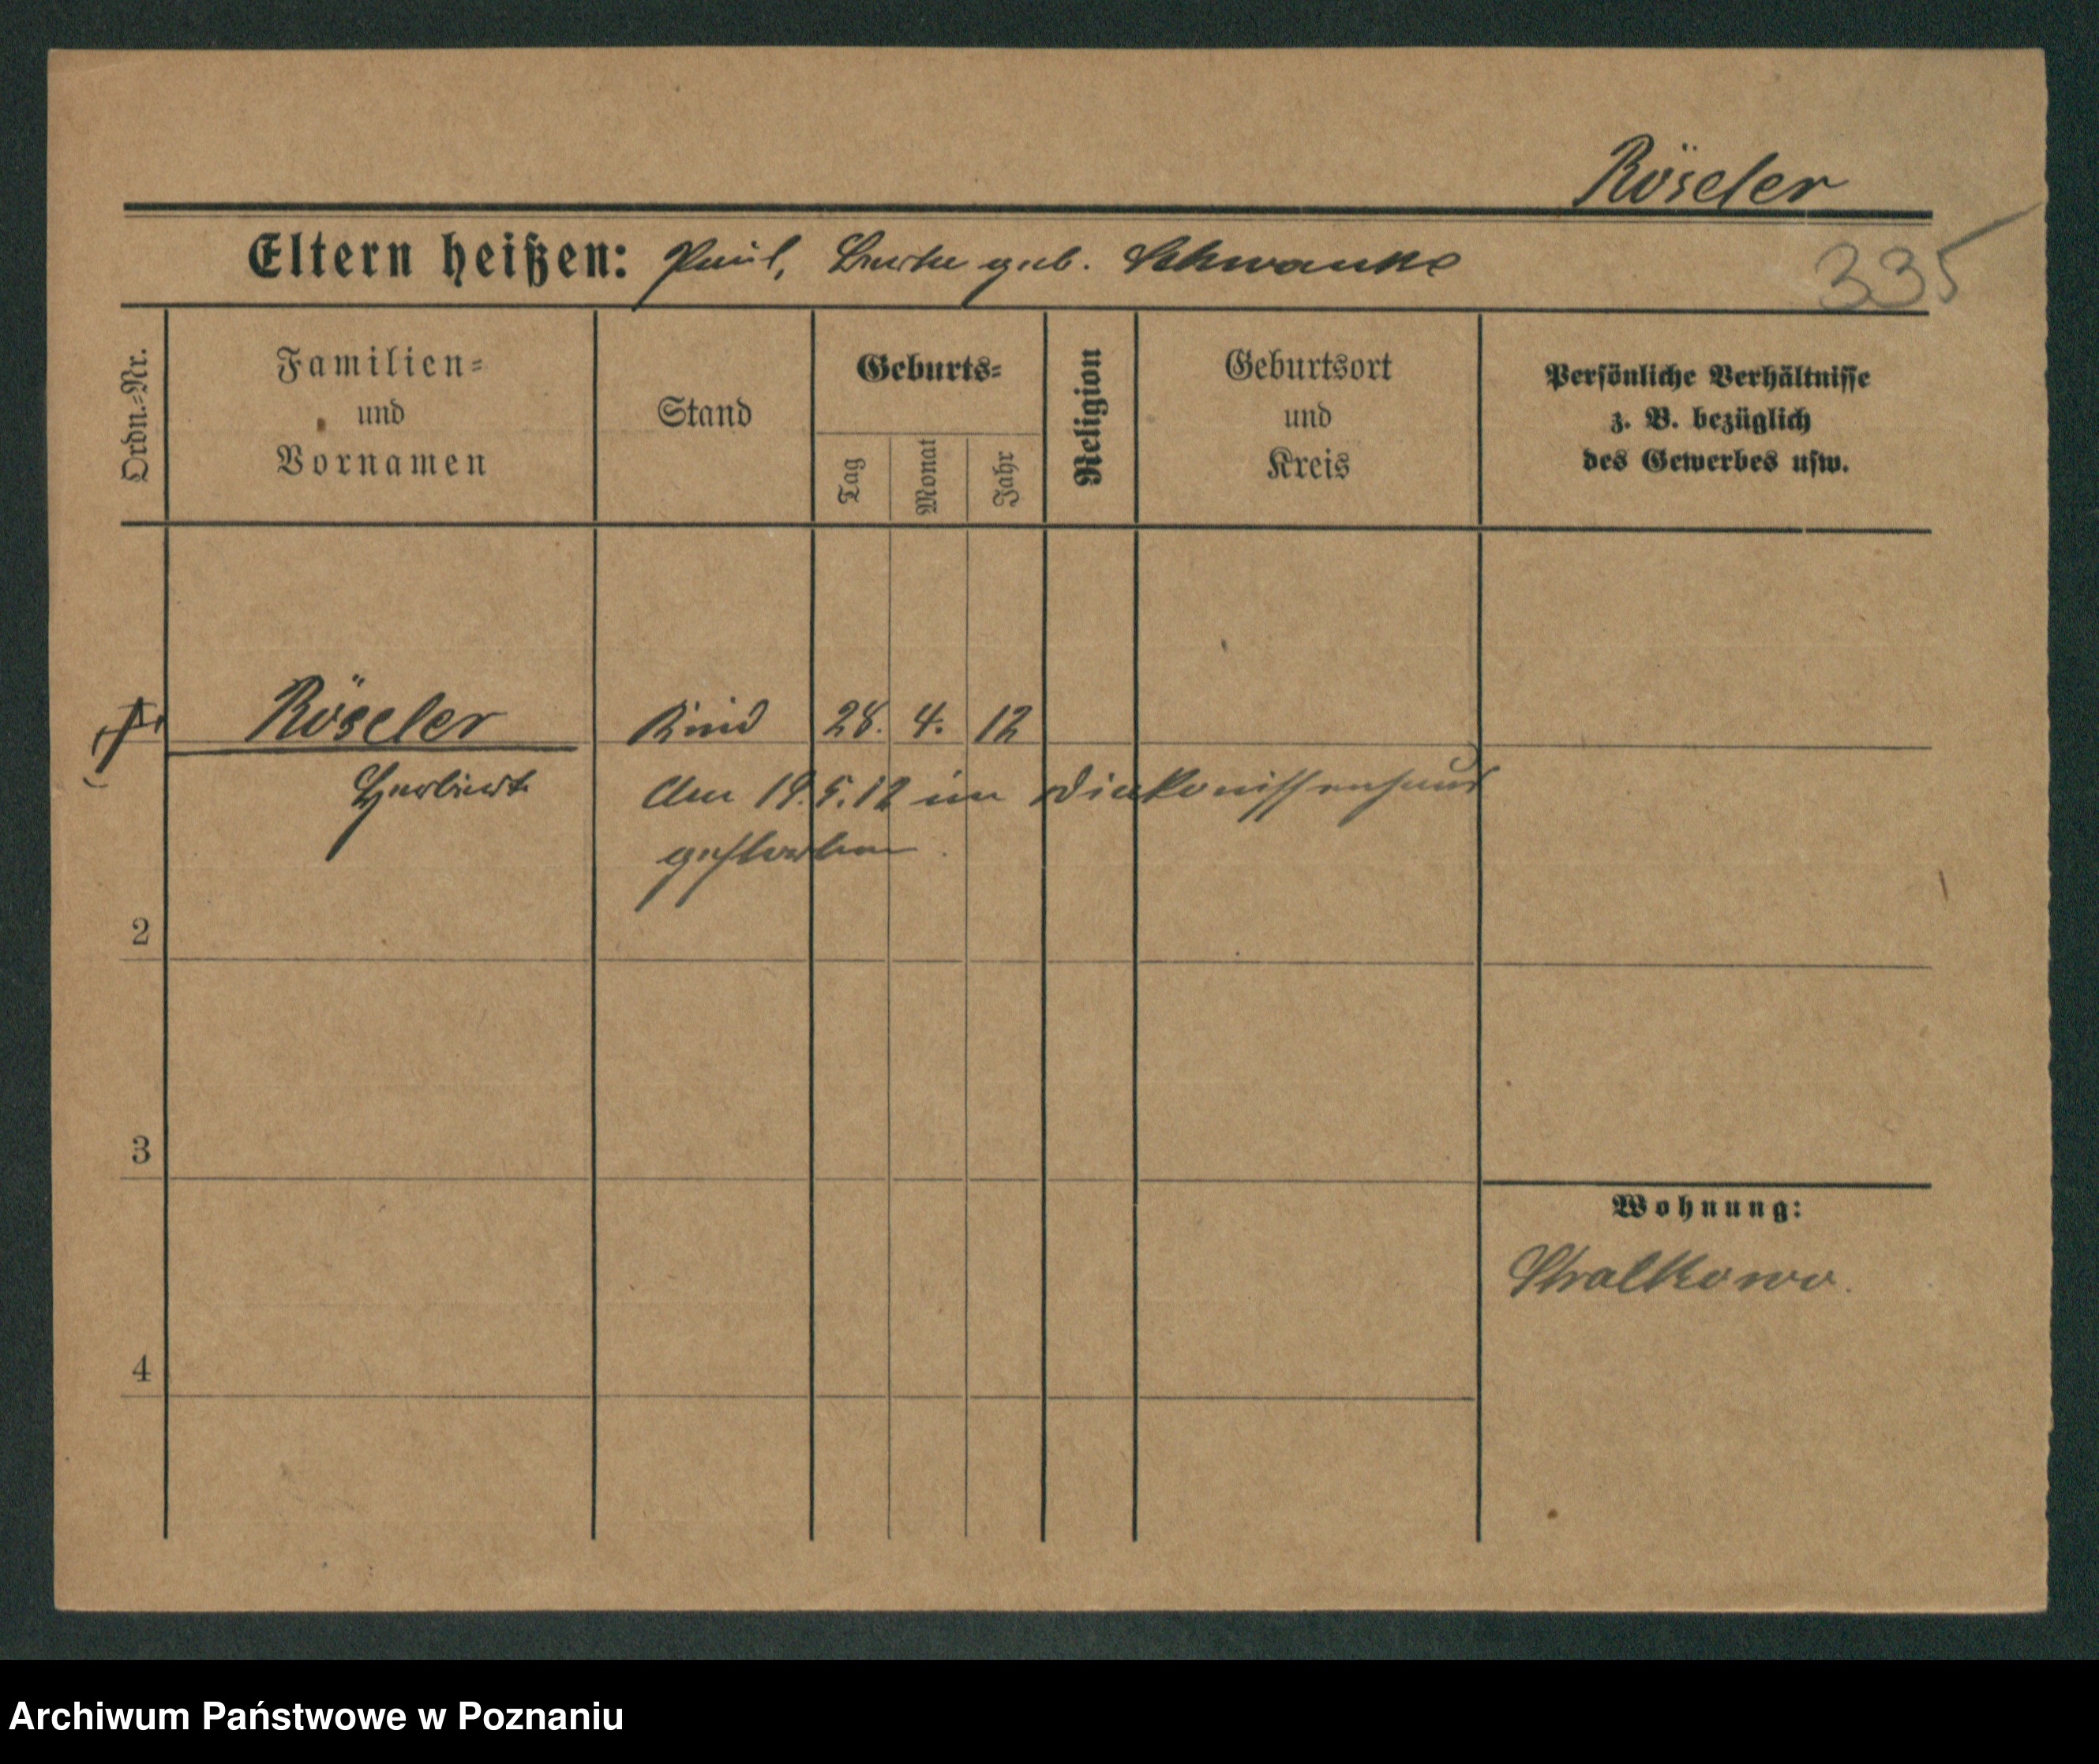 Röseler
Eltern heißen: Paul, geb. Schwanke
335
Ordn.-Nr.
Familien-
und
Vornamen
Stand
Geburts-
Tag
Monat
Jahr
Religion
Geburtsort
und
Kreis
Persönliche Verhältnisse
z. B. bezüglich
des Gewerbes usw.
Röseler Kind 28. 4. 12
Herbert Am 19.5.12 im Diakonissenhaus
gestorben.
2
3
Wohnung:
Stralkowo.
4
Archiwum Państwowe w Poznaniu